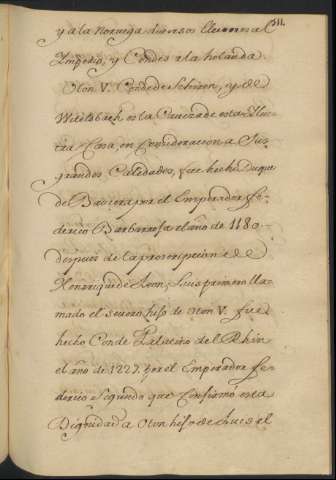 311.
y a la Noruega diversos
Imperio, y Condes a la holanda
Oton V. Conde de Schiren, y de
Witelsbach es la Caveza de esta Illus-
tre Casa, en Consideracion a Sus
grandes Calidades, fue hecho Duque
de Baviera por el Emperador Fe-
derico Barbarroja el año de 1180
despues de la proscripcion de
Henrique de Leon, Luis primero lla-
mado el severo hijo de Oton V. fue
hecho Conde Palatino del Rhin
el año de 1227. por el Emperador Fe-
derico Segundo que Confirmó esta
Dignidad a Oton hijo de Luis el